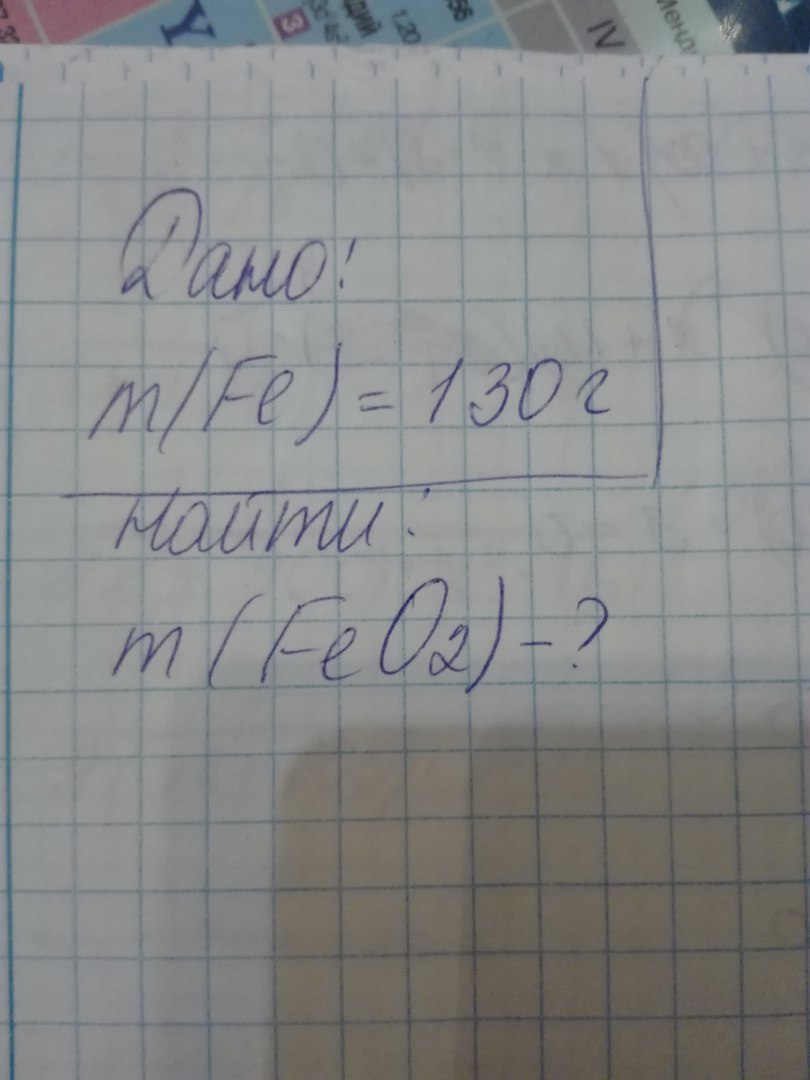 97.39
Y
3
1.20
56
IV
Менд
Дано!
m(Fe) = 130г
Найти:
m(FeO2) - ?